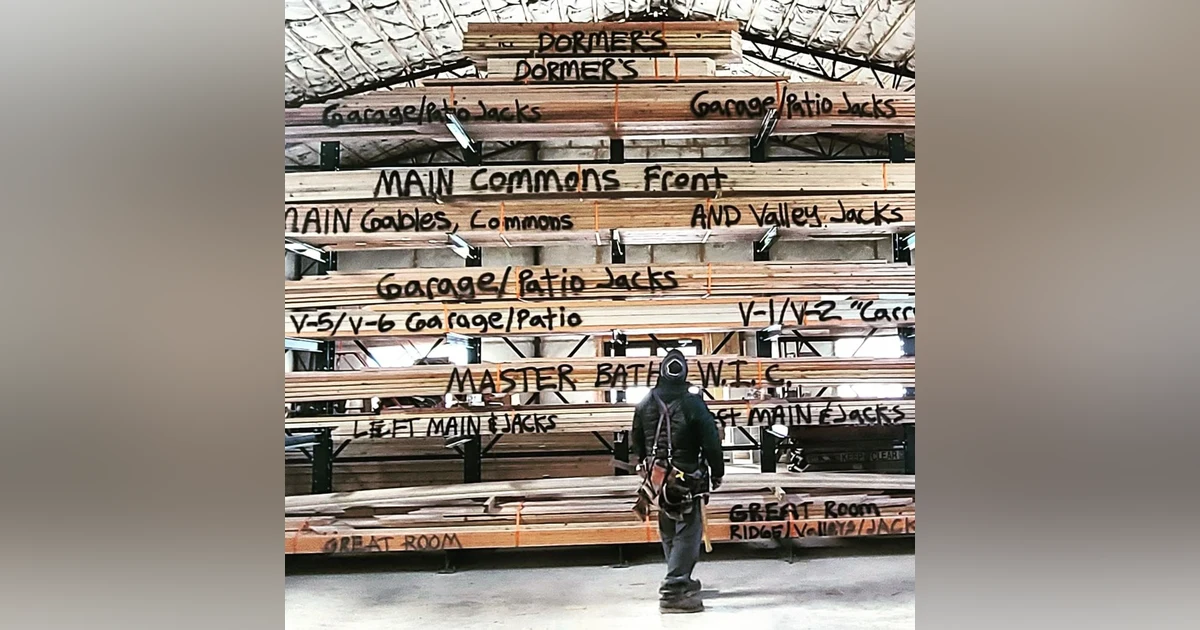 DORMER'S
DORMER'S
Garage/Patio Jacks Garage/Patio Jacks
MAIN Commons Front
MAIN Gables, Commons AND Valley Jacks
Garage/Patio Jacks
V-5/V-6 Garage/Patio V-1/V-2 "Carr
MASTER BATH W.I.C.
LEFT MAIN & JACKS eft MAIN & Jacks
KEEP CLEAR
GREAT Room
RIDGE/Valleys/JACK
GREAT ROOM